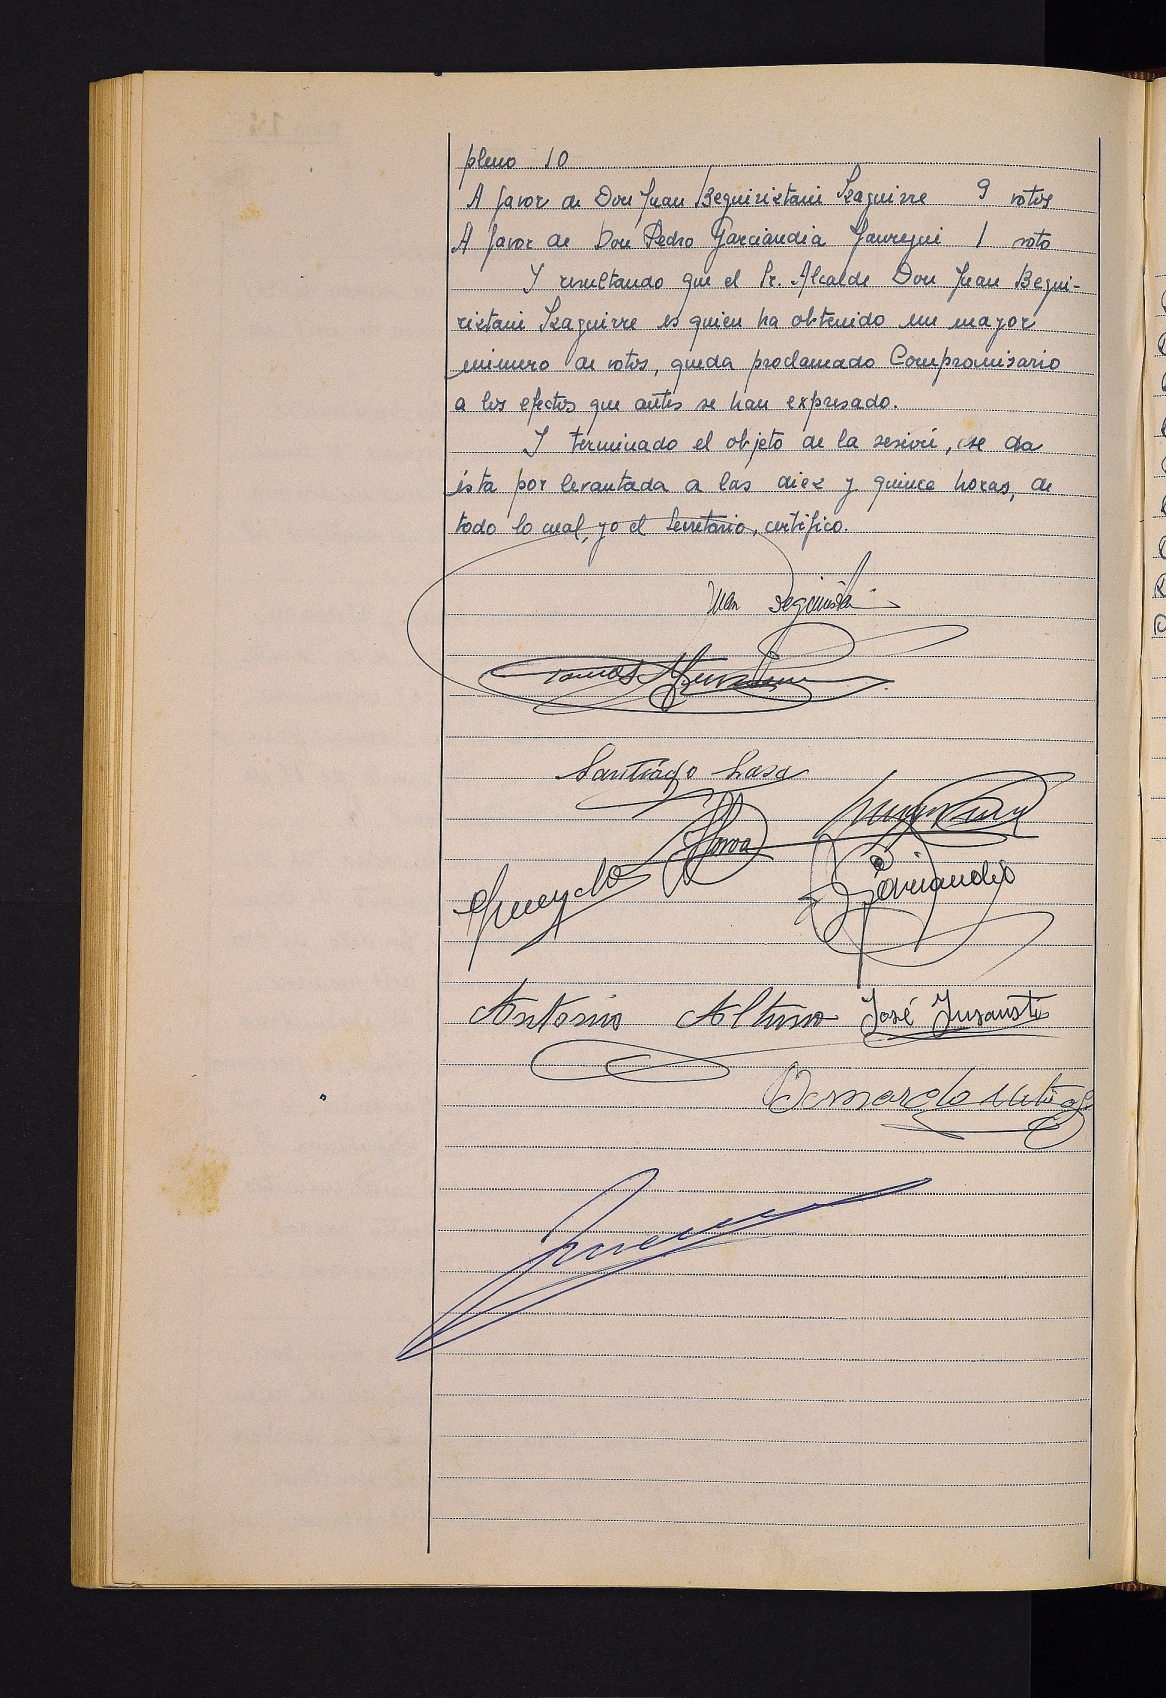 pleno 10
A favor de Don Juan Beguiristain Izaguirre 9 votos
A favor de Don Pedro Garciandia Jauregui 1 voto
Y resultando que el Sr. Alcalde Don Juan Begui-
ristain Izaguirre es quien ha obtenido un mayor
número de votos, queda proclamado Compromisario
a los efectos que antes se han expresado.
Y terminado el objeto de la sesión, se da
ésta por levantada a las diez y quince horas, de
todo lo cual, yo el Secretario, certifico.
Juan
Santiago Lasa
Garciandia
Antonio Altuna José Insausti
Bernardo